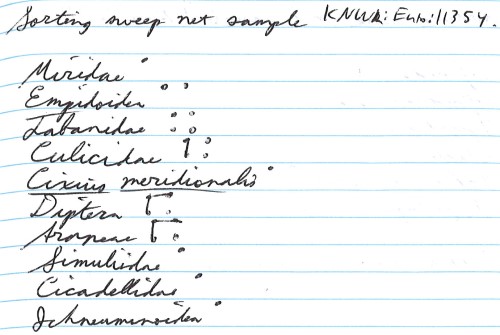 Sorting sweep net sample KNWR:Ento:11354.
Miridae
Empidoidea
Tabanidae
Culicidae
Cixius meridionalis
Diptera
Araneae
Simuliidae
Cicadellidae
Ichneumonoidea